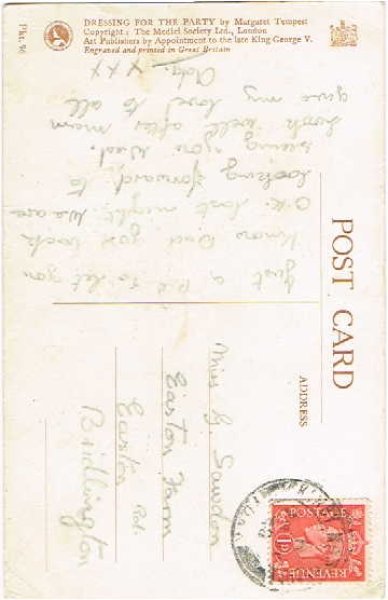 DRESSING FOR THE PARTY by Margaret Tempest
Copyright : The Medici Society Ltd., London
Art Publishers by Appointment to the late King George V.
Engraved and printed in Great Britain
Pkt. 96
POST CARD
Just a P.C. to let you
know Dad got back
O.K. last night. We are
looking forward to
seeing you Wed.
Look well after mam
give my love to all
Ada. xxx
ADDRESS
Miss G. Sawdon
Easton Farm
Easton Rd.
Bridlington
POSTAGE
1D
REVENUE